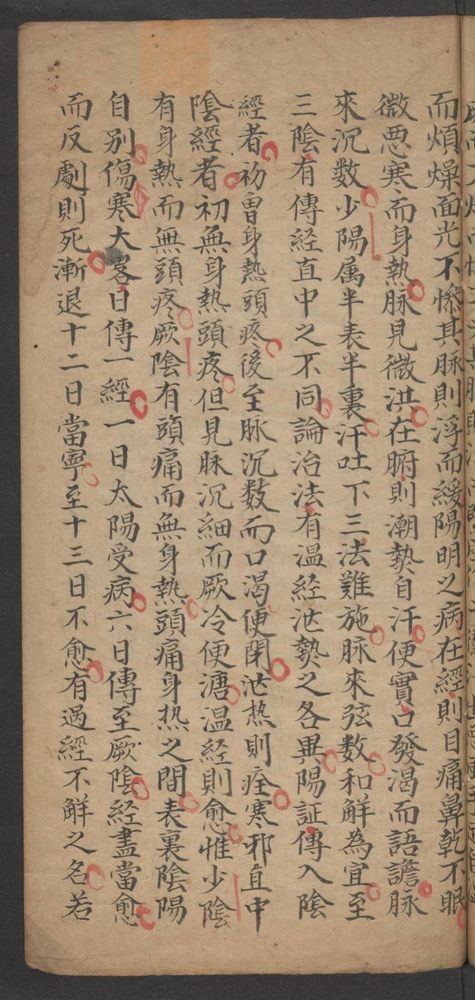 而煩燥面光不慘其脉則浮而緩陽明之病在經則目痛鼻乾不眠
微恶寒而身熱脉見微洪在腑則潮𤍠自汗便實口發渴而語譫脉
來沉数少陽属半表半裏汗吐下三法難施脉來弦数和解為宜至
三陰有傳經直中之不同論治法有温經泄𤍠之各異陽証傳入陰
經者初曽身熱頭疼後至脉沉数而口渴便閉泄热則痊寒邪直中
陰經者初無身熱頭疼但見脉沉細而厥冷便溏温経則愈惟少陰
有身熱而無頭疼厥陰有頭痛而無身熱頭痛身热之間表裏陰陽
自别傷寒大畧日傳一經一日太陽受病六日傳至厥陰經盡當愈
而反劇則死漸退十二日當寧至十三日不愈有過經不觧之名若